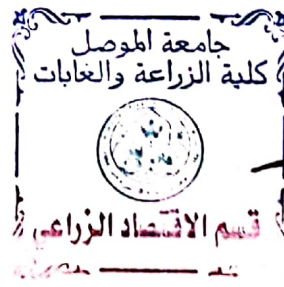 جامعة الموصل
كلية الزراعة والغابات
قسم الاقتصاد الزراعي